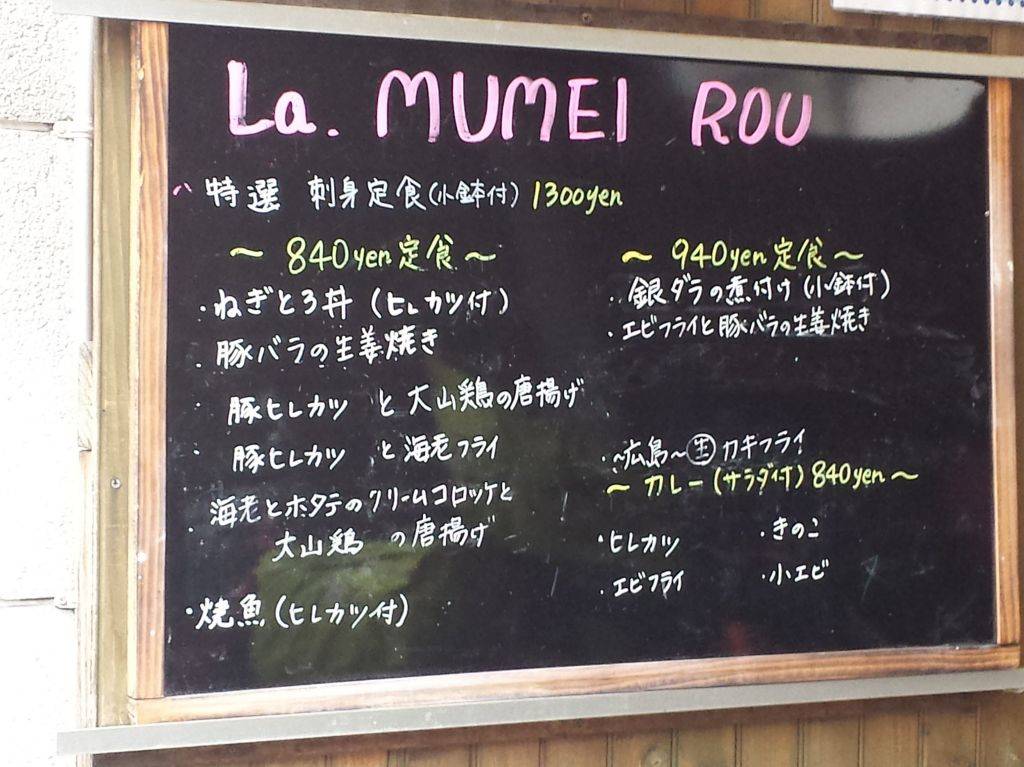 La. MUMEI ROU
特選 刺身定食(小鉢付) 1300yen
〜 840yen定食 〜
・ねぎとろ丼 (ヒレカツ付)
・豚バラの生姜焼き
・豚ヒレカツ と大山鶏の唐揚げ
・豚ヒレカツ と海老フライ
・海老とホタテのクリームコロッケと
大山鶏 の唐揚げ
・焼魚(ヒレカツ付)
〜 940yen定食 〜
・銀ダラの煮付け(小鉢付)
・エビフライと豚バラの生姜焼き
・〜広島〜㊤カキフライ
〜 カレー(サラダ付) 840yen 〜
・ヒレカツ ・きのこ
・エビフライ ・小エビ